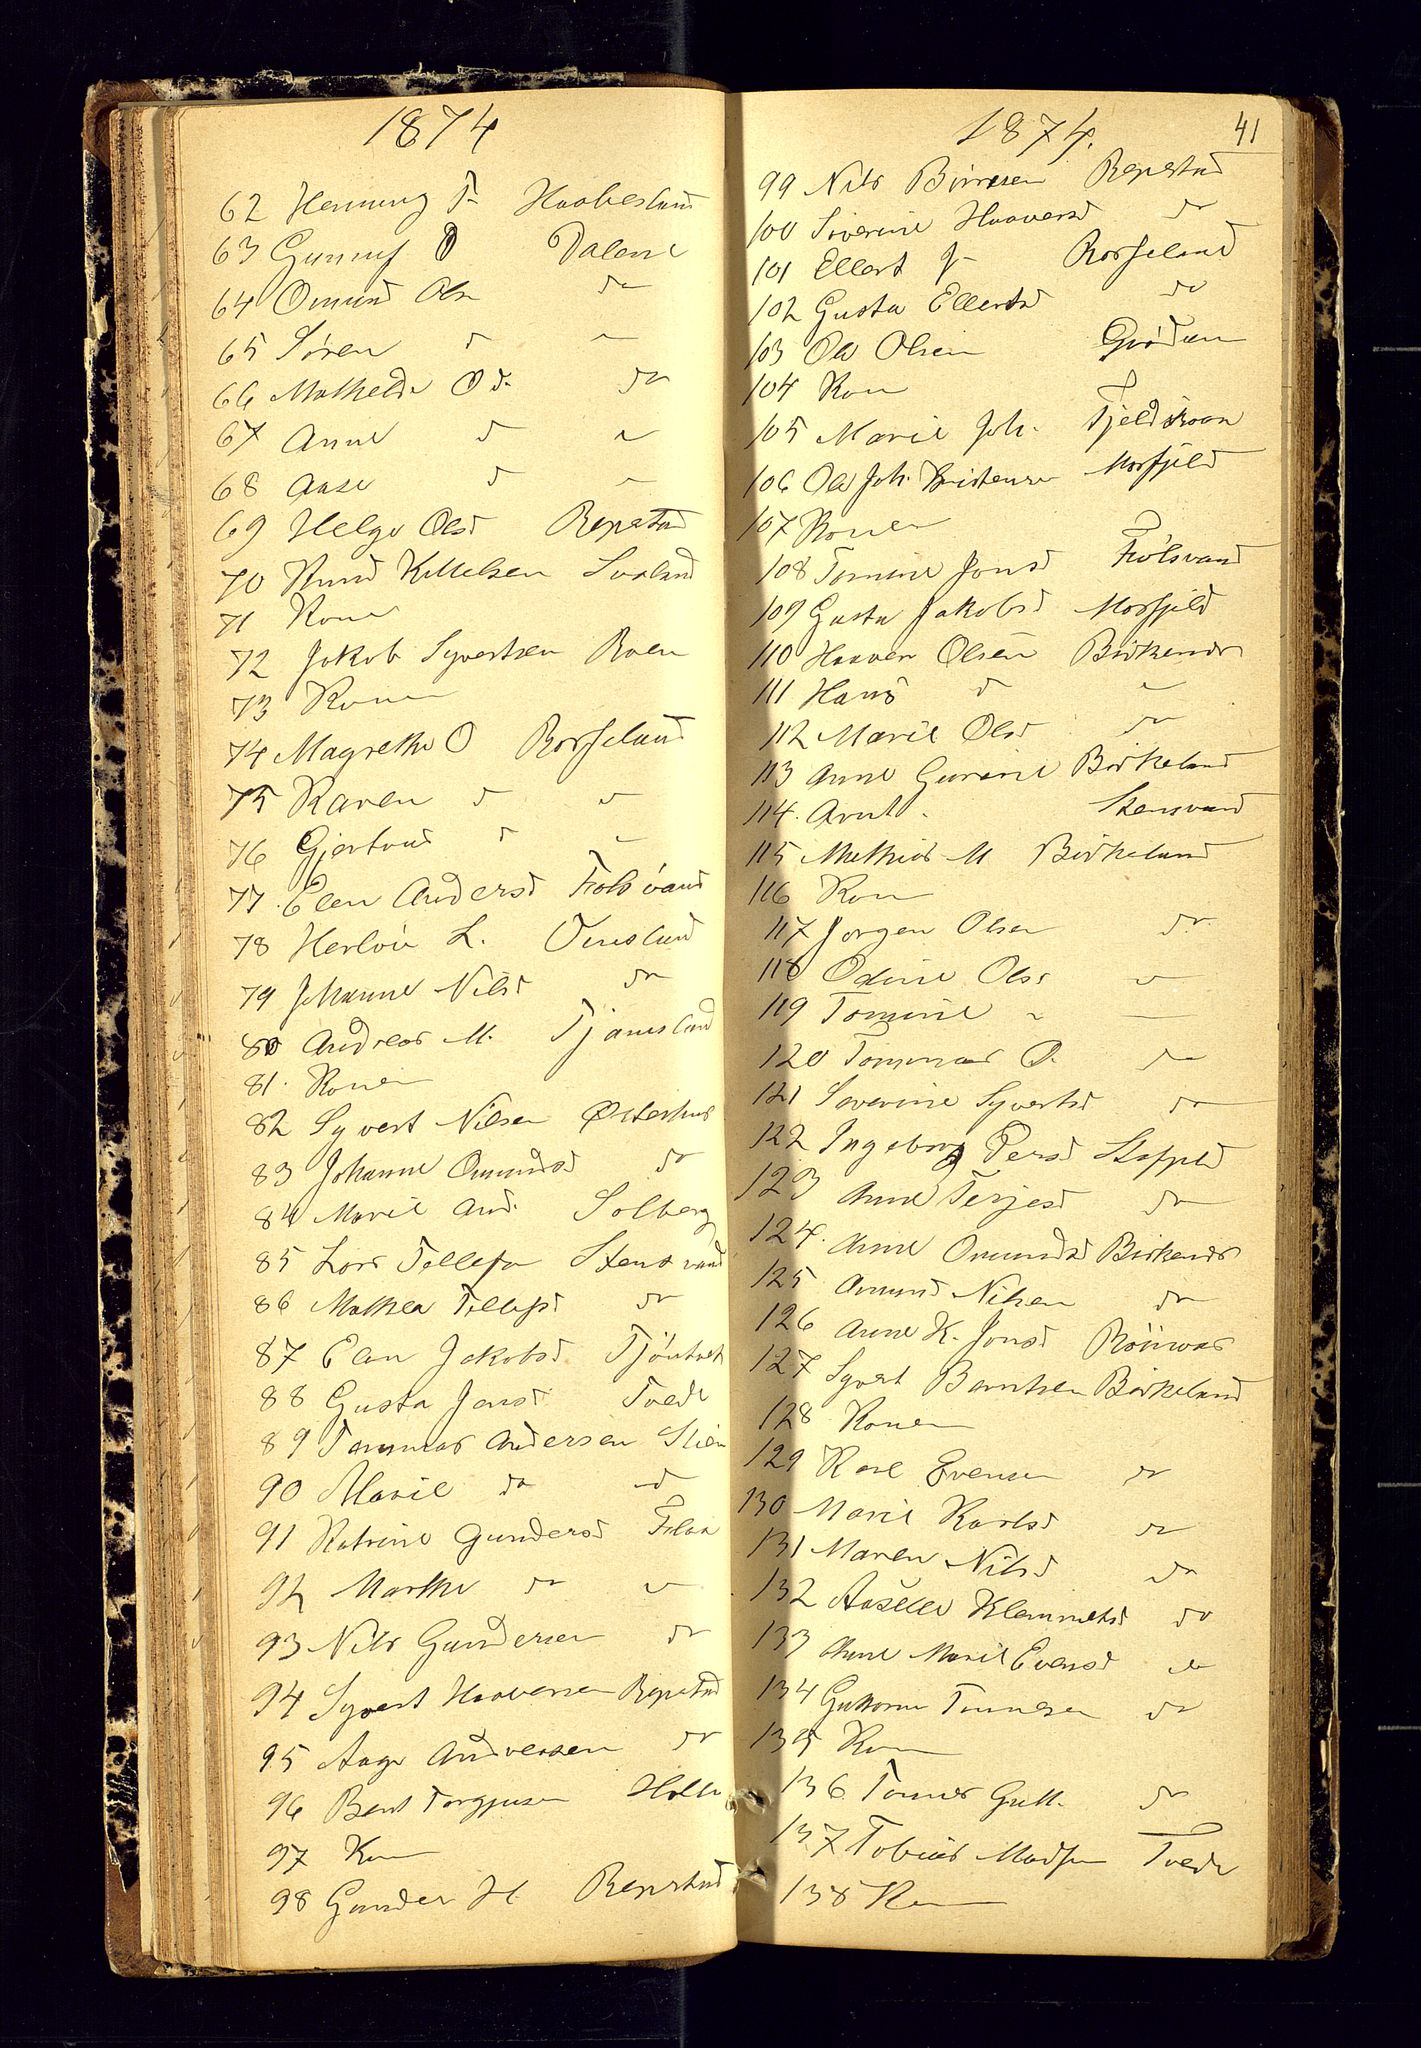 1874
62 Henning T. Haabesland
63 Gunnuf O Dalene
64 Omund Olsn do
65 Søren d "
66 Mathilde Od. do
67 Anne d "
68 Aase d "
69 Helge Olsd Repstad
70 Knud Kittelsen Svaland
71 Kone
72 Jakob Syvertsen Roen
73 Konen
74 Magrethe O Rosseland
75 Karen d "
76 Gjertrud d "
77 Elen Andersd Fidsvand
78 Herlow L. Omsland
79 Johanne Nilsd do
80 Andreas M. Tjamsland
81. Konen
82 Syvert Nilsen Østerhus
83 Johanne Omundsd do
84 Marie And. Solberg
85 Lars Tellefsn Stensvand
86 Mathea Tellefsd do
87 Elen Jakobsd Tjøntvet
88 Gusta Jensd Tvede
89 Tommas Andersen
90 Marie do d
91 Katrine Gundersd Flaa
92 Marthe do "
93 Nils Gundersen do
94 Syvert Haaversen Repstad
95 Aage Andersen do
96 Bent Torgjusen
97 Kon
98 Gunder H Repstad
1874. 41
99 Nils Børresen Repstad
100 Siverine Haaversd do
101 Ellert J Rosseland
102 Gusta Ellertsd do
103 Ole Olsen
104 Kon
105 Marie Joh. Fjeldskaar
106 Ole Joh. Kristensen Mosfjeld
107 Konen
108 Tomine Jonsd Fidsvand
109 Gusta Jakobsd Mosfjeld
110 Haaver Olsen Birkenes
111 Hans d "
112 Marie Olsd do
113 Anne Gurine Birkeland
114. Arnt. Stensvand
115 Mathias M Birkeland
116 Kon
117 Jørgen Olsen do.
118 Odine Olsd "
119 Tomine " —
120 Tommas O. do
121 Severine Syvertsd do
122 Ingeborg Persd
123 Anne Terjesd do
124. Anne Omundsd Birkenes
125 Omund Nilsen do
126 Anne K. Jonsd
127 Syvert Berntsen Birkeland
128 Konen
129 Karl Evensen do
130 Marie Karlsd do
131 Maren Nilsd do
132 Aaselle Klemmetsd do
133 Anne Marie Evensd do
134 Guttorm Tønnesen do
135 Kon
136 Tomas Gutt. do
137 Tobias Madsen Tvede
138 Kon